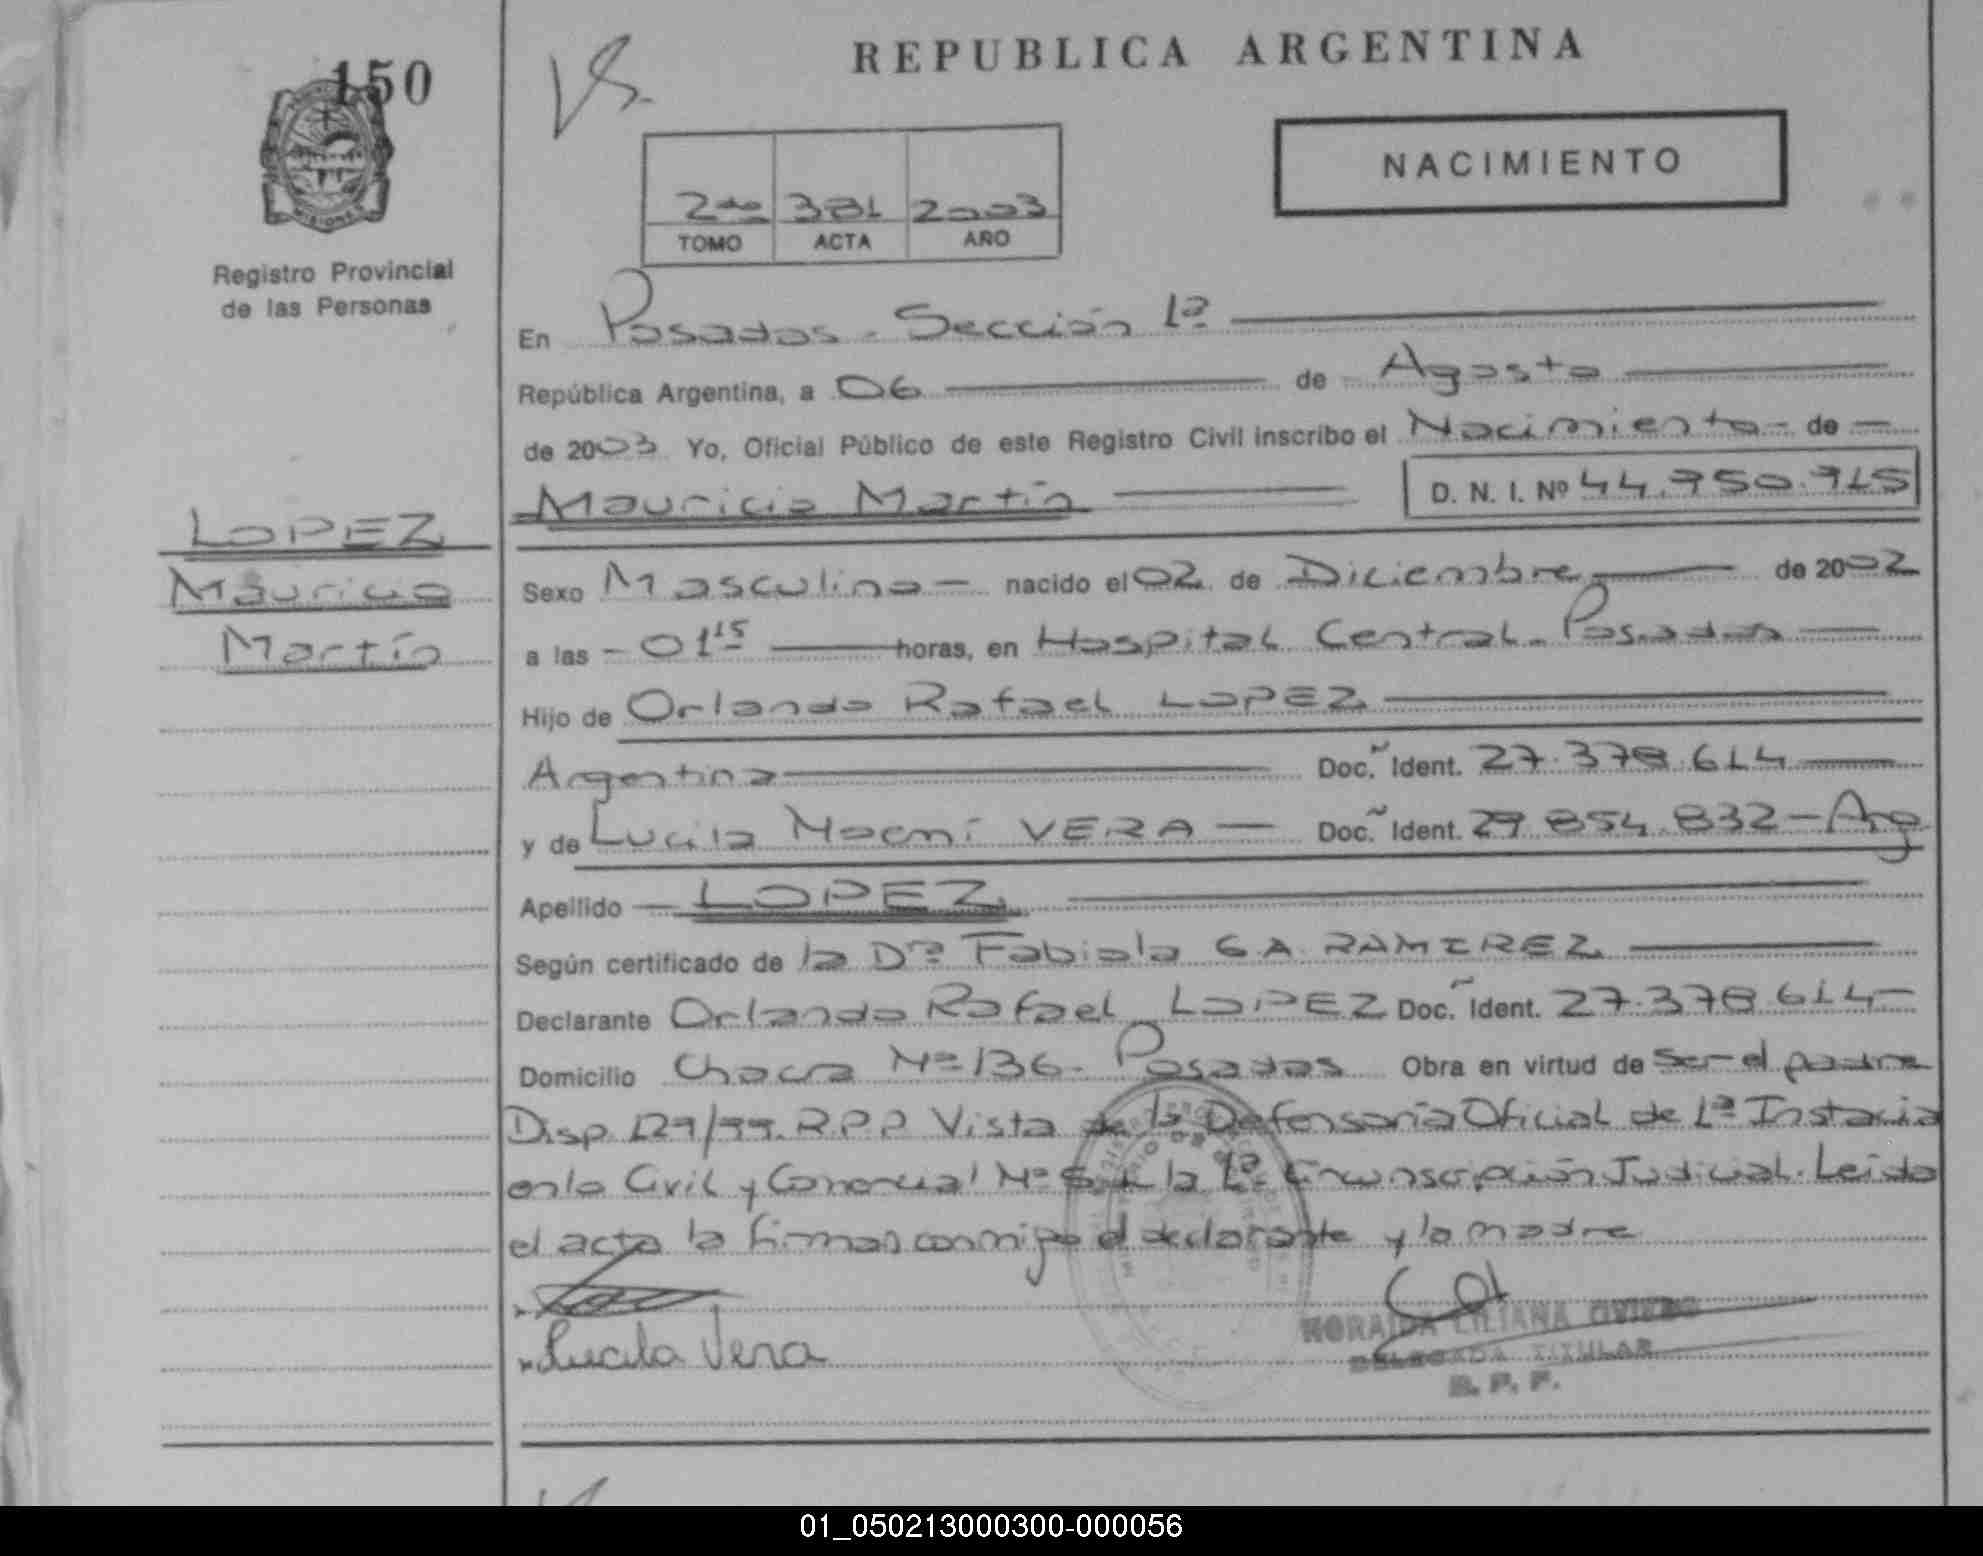 150
Registro Provincial
de las Personas
LOPEZ
Mauricio
Martín
REPUBLICA ARGENTINA
NACIMIENTO
2do 381 2003
TOMO ACTA AÑO
En Posadas - Sección 1ª
República Argentina, a 06 de Agosto
de 2003 Yo, Oficial Público de este Registro Civil inscribo el Nacimiento - de —
Mauricio Martín D. N. I. Nº 44.750.715
Sexo Masculino — nacido el 02 de Diciembre de 2002
a las - 01 15 horas, en Hospital Central - Posadas
Hijo de Orlando Rafael LOPEZ
Argentina Doc. Ident. 27.378.614
y de Lucila Noemí VERA — Doc. Ident. 29.854.832 - Arg
Apellido — LOPEZ
Según certificado de la Drª Fabiola G A RAMIREZ
Declarante Orlando Rafael LOPEZ Doc. Ident. 27.378.614 —
Domicilio Chacra Nº 136 - Posadas Obra en virtud de ser el padre
Disp. 129/99. R.P.P Vista de la Defensoría Oficial de 1ª Instacia
en lo Civil y Comercial Nº 5 de la 1ª Circunscripción Judicial. Leida
el acta la firman conmigo el declarante y la madre
Lucila Vera
HORAIDA LILIANA OVIEDO
DELEGADA TITULAR
R. P. P.
01_050213000300-000056